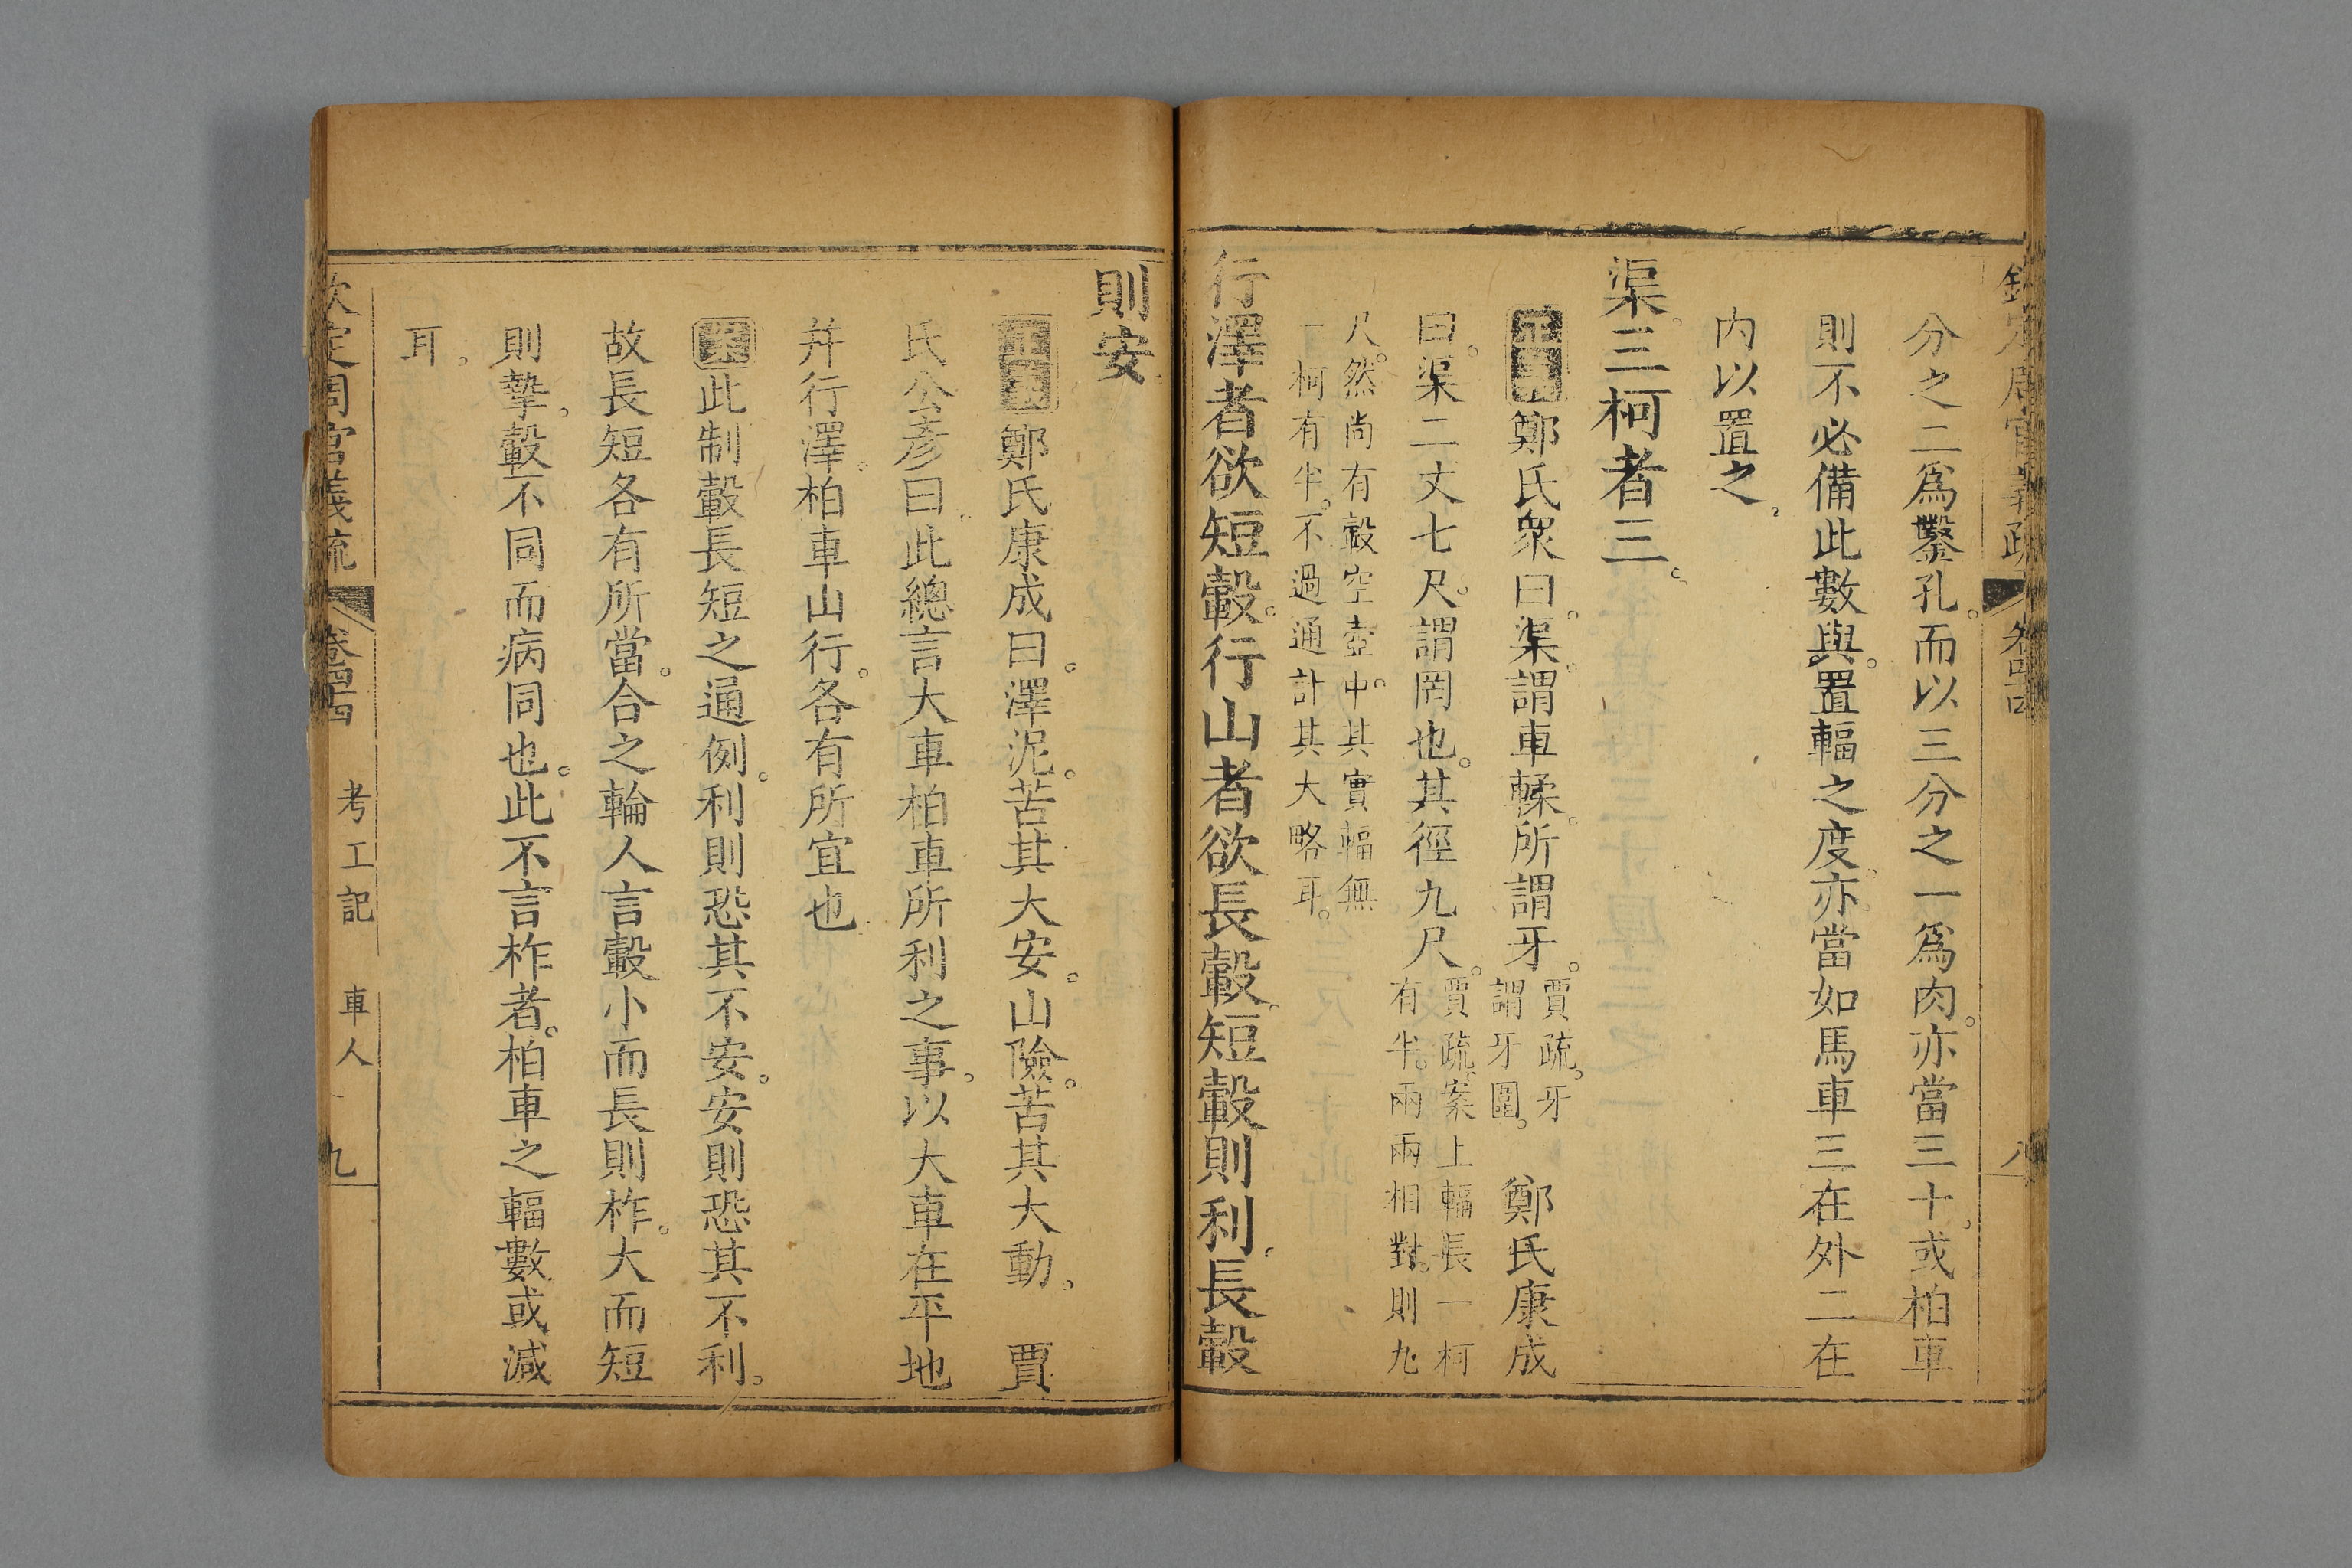 欽定周官義疏 卷四十四 八
分之二爲鑿孔。而以三分之一爲肉。亦當三十。或柏車
則不必備此數與。置輻之度。亦當如馬車三在外二在
內以置之。
渠三柯者三。
正義鄭氏衆曰。渠。謂車輮。所謂牙。賈疏。牙謂牙圍。 鄭氏康成
曰。渠二丈七尺。謂罔也。其徑九尺。賈疏。案上輻長一柯有半。兩兩相對。則九
尺。然尚有轂空壺中。其實輻無
一柯有半。不過通計其大略耳。
行澤者欲短轂。行山者欲長轂。短轂則利。長轂
則安
正義鄭氏康成曰。澤泥。苦其大安。山險。苦其大動。 賈
氏公彥曰。此總言大車柏車所利之事。以大車在平地
幷行澤。柏車山行。各有所宜也
案此制轂長短之通例。利則恐其不安。安則恐其不利。
故長短各有所當。合之輪人言轂小而長則柞。大而短
則摯。轂不同而病同也。此不言柞者。柏車之輻數或減
耳。
欽定周官義疏 卷四十四 考工記 車人 九